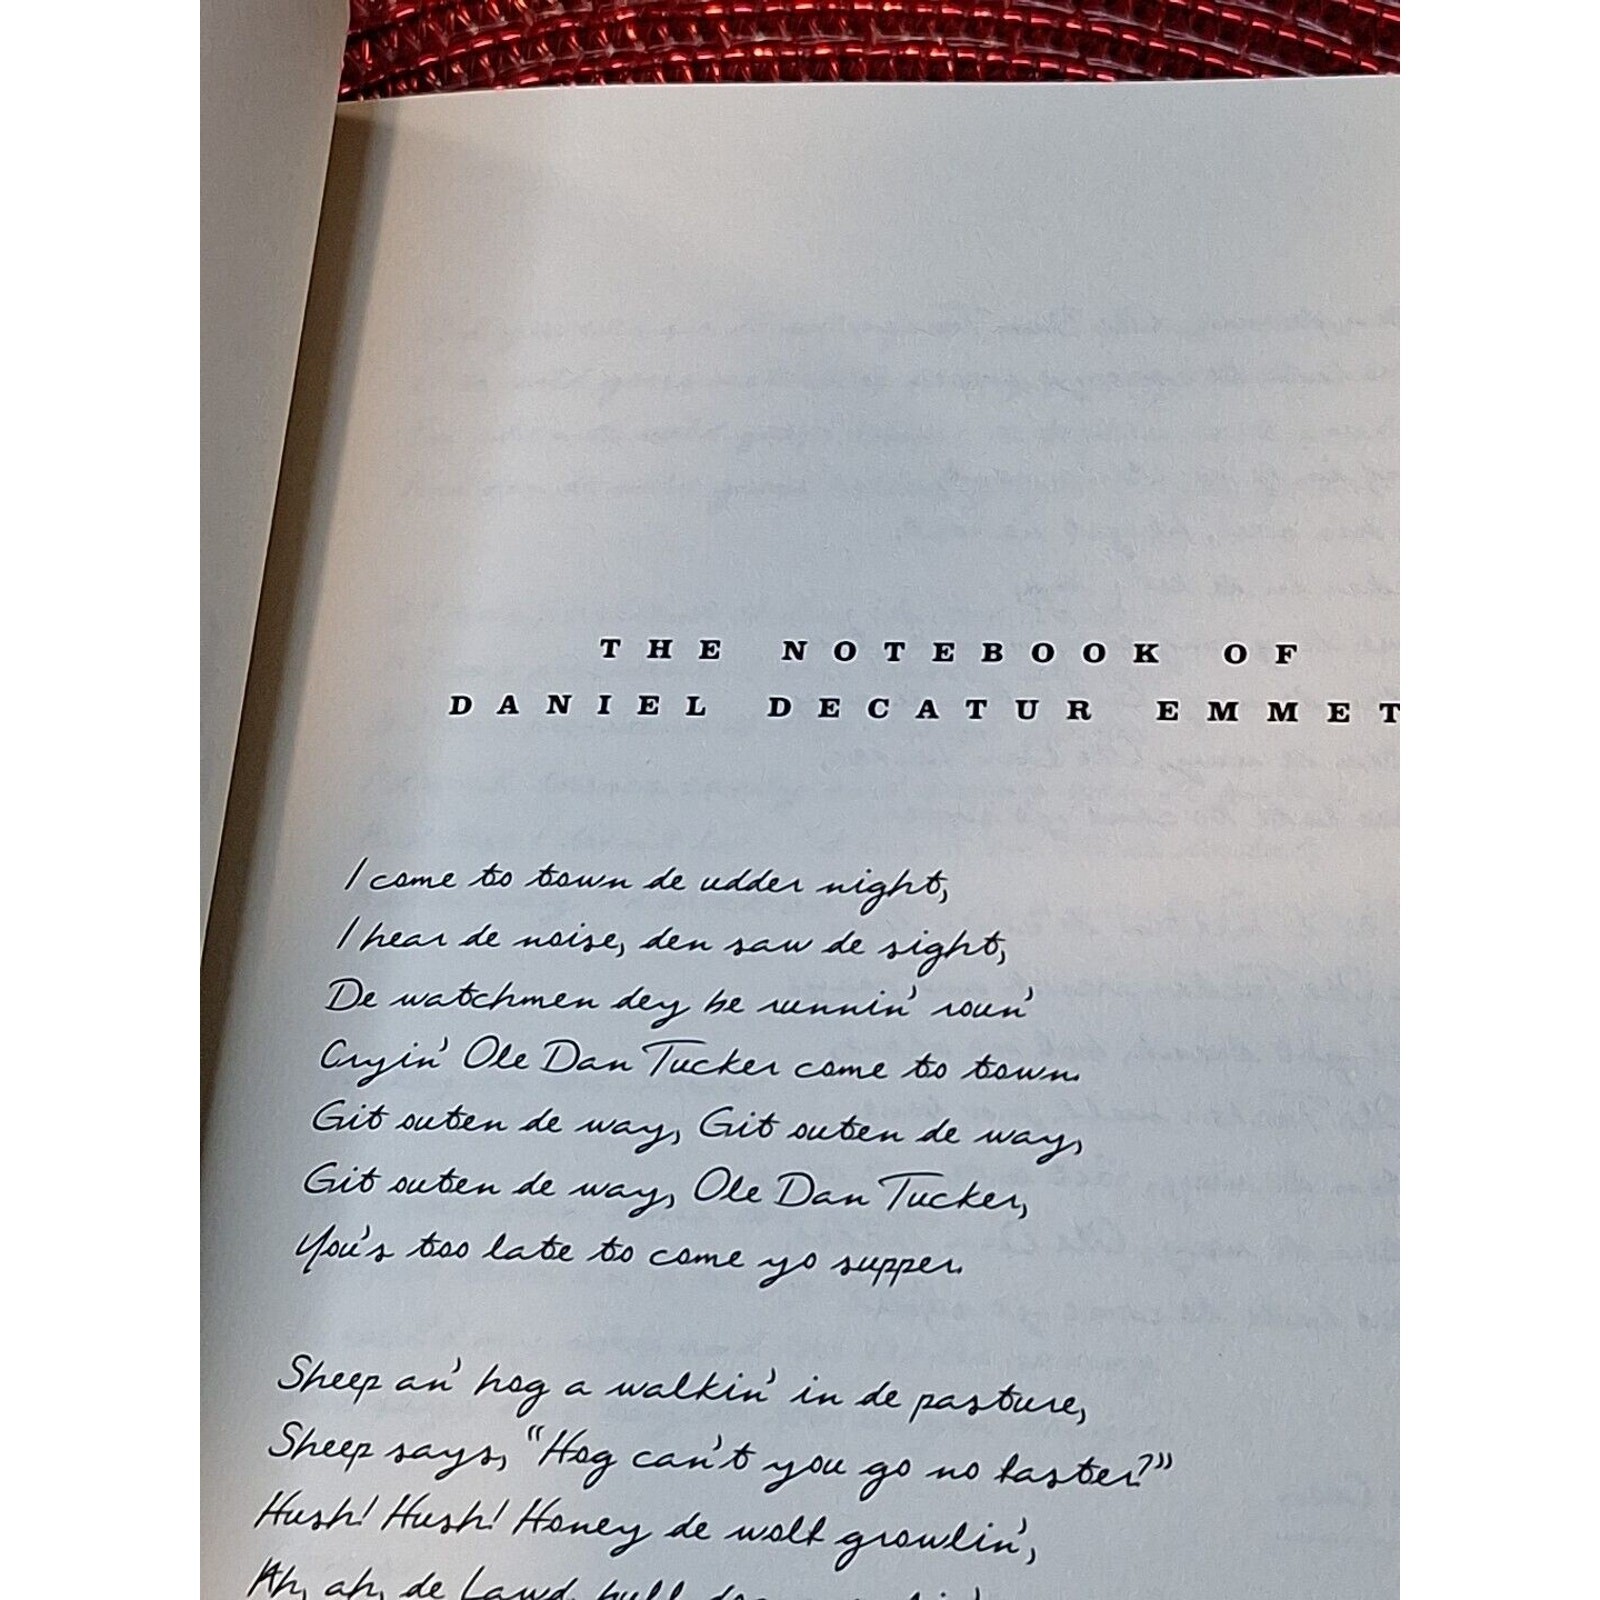 THE NOTEBOOK OF
DANIEL DECATUR EMMET
I come to town de udder night,
I hear de noise, den saw de sight,
De watchmen dey be runnin' roun'
Cryin' Ole Dan Tucker come to town.
Git outen de way, Git outen de way,
Git outen de way, Ole Dan Tucker,
You's too late to come yo supper.
Sheep an' hog a walkin' in de pasture,
Sheep says, "Hog can't you go no faster?"
Hush! Hush! Honey de wolf growlin',
Ah, ah, de Lawd, bull dog